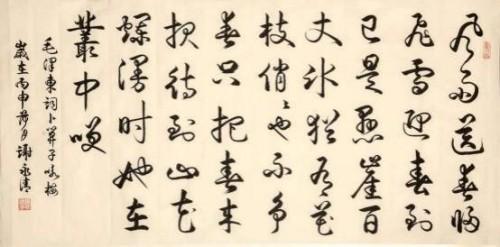 风雨送春归
飛雪迎春到
已是悬崖百
丈冰犹有花
枝俏々也不争
春只把春来
报待到山花
烂漫时她在
叢中咲
毛泽東词卜算子咏梅
歲在丙申 月谢永清